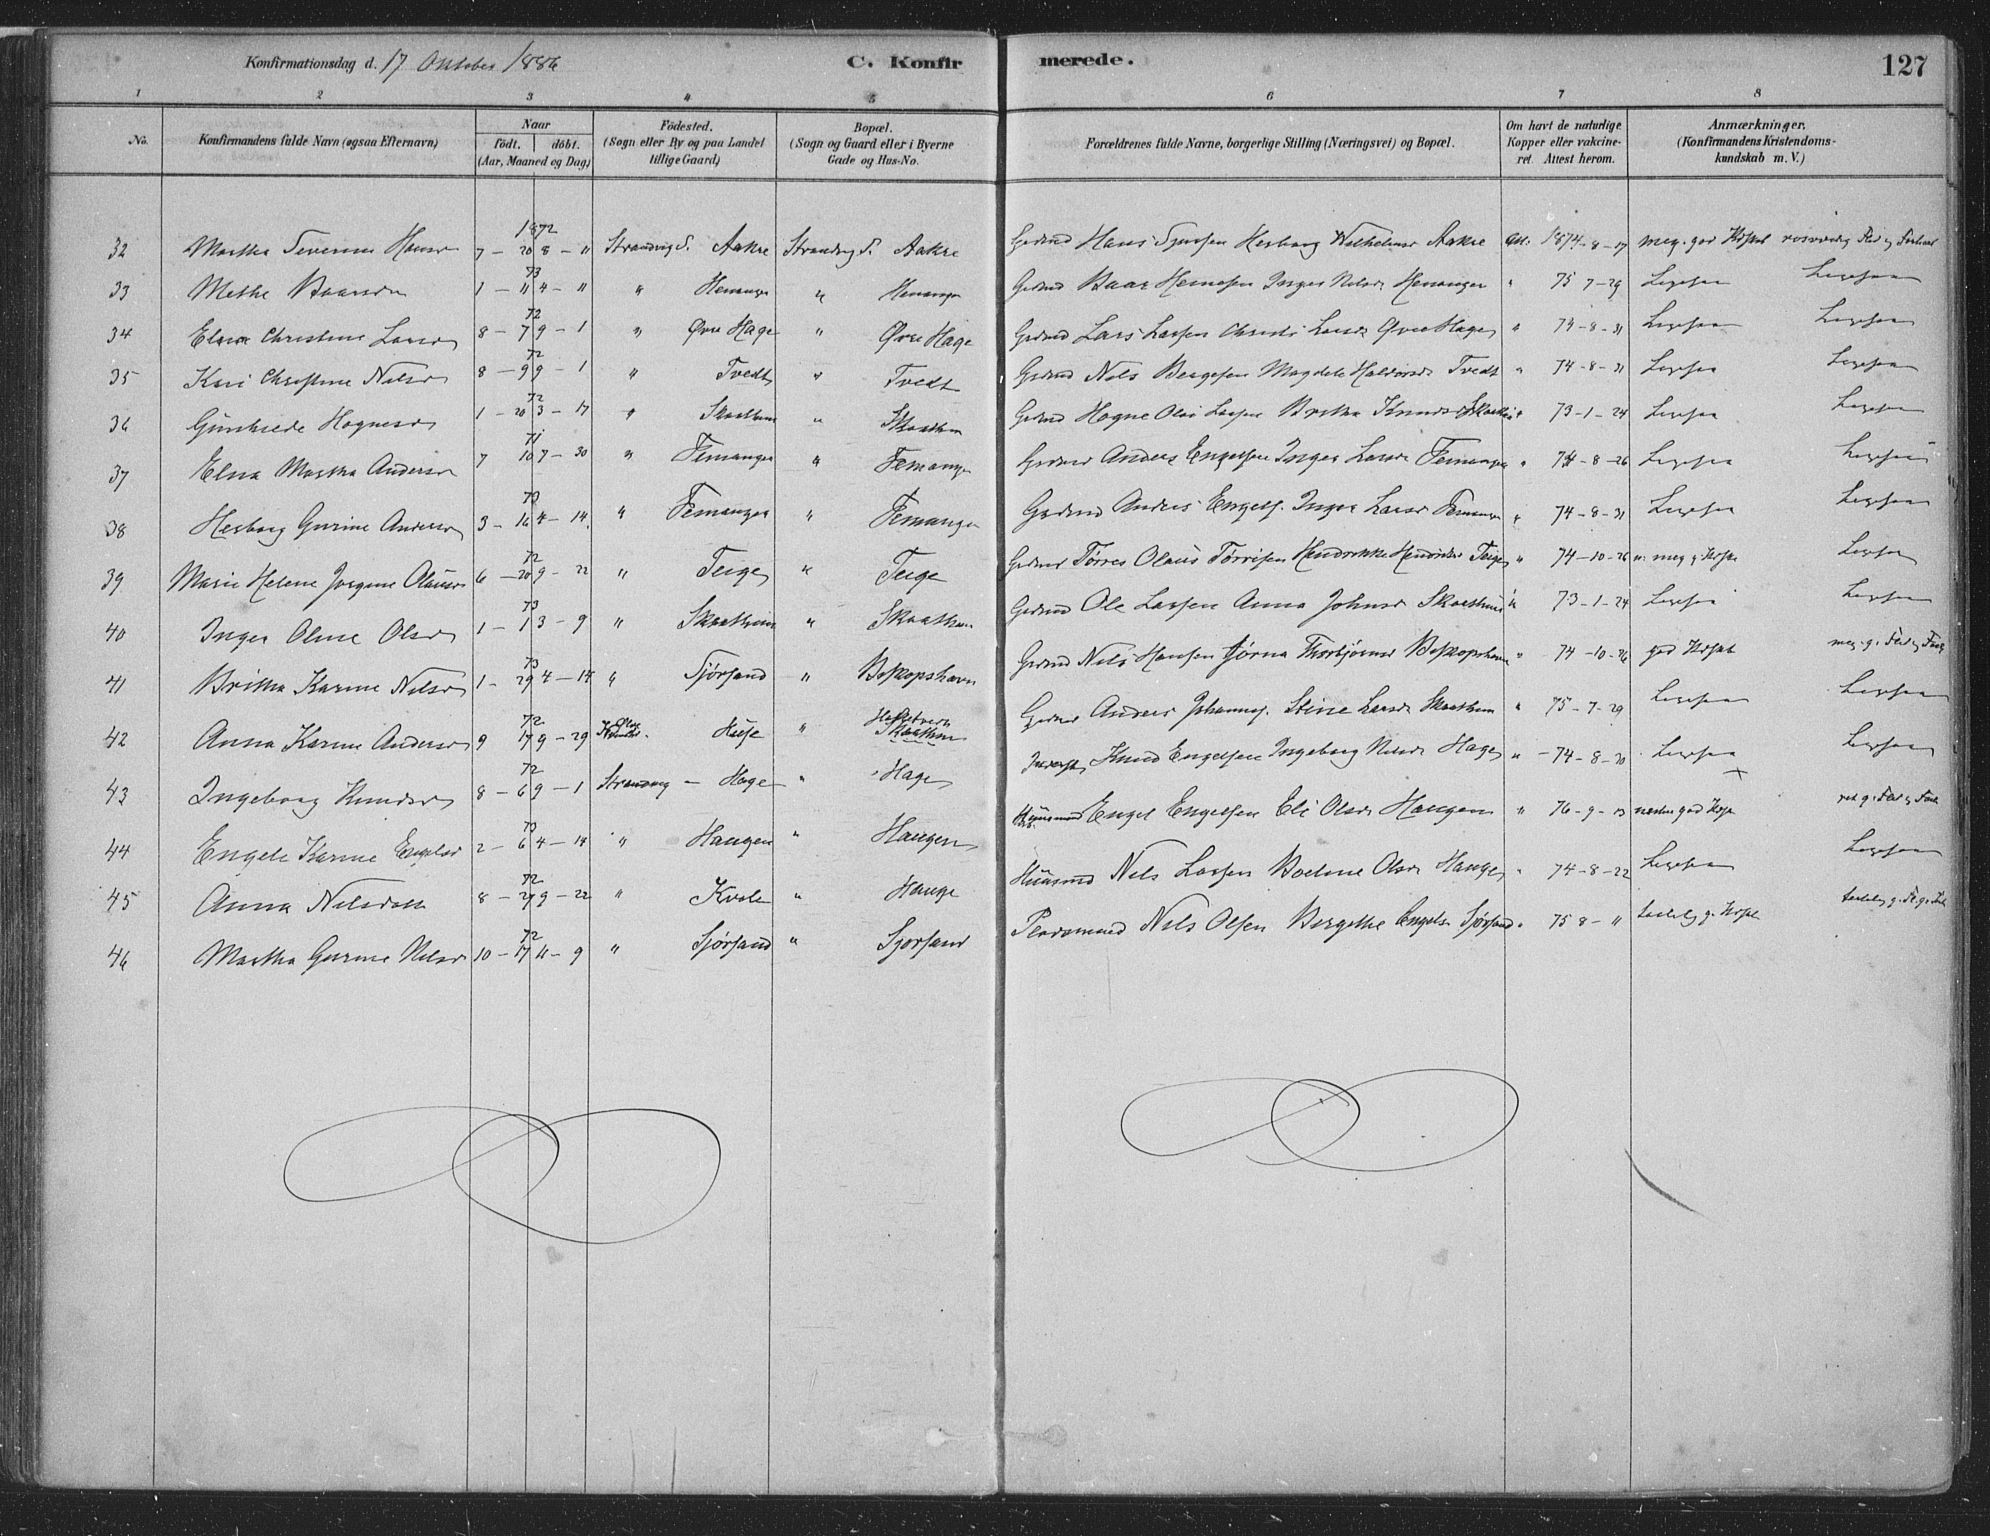 Konfirmationsdag d. 17 October 1886 C. Konfir merede. 127
1 2 3 4 5 6 7 8
No. Konfirmandens fulde Navn (ogsaa Efternavn) Naar født. døbt. (Aar, Maaned og Dag) Fødested. (Sogn eller By og paa Landet tillige Gaard) Bopæl. (Sogn og Gaard eller i Byerne Gade og Hus-No. Forældrenes fulde Navne, borgerlige Stilling (Næringsvei) og Bopæl. Om havt de naturlige Kopper eller vakcineret. Attest herom. Anmærkninger. (Konfirmandens Kristendomskundskab m. V.)
32 Martha Severine Hansd 1872 7 – 20 8 – " Strandvig S. Aakre Strandvig S. Aakre Grdmd Hans Herborg Aakre Att: 1874-8-17 meg. god Kdskb Flid og Forhold
33 Methe Baarsd 73 1 – 11 4 – " " Henanger " Henanger Grdmd Baar Inger Nilsd Henanger " 75 7-29 Ligesaa Ligesaa
34 Elna Christine Larsd 72 8 – 7 9 – 1 " Øvre Hage " Øvre Hage Grdmd Lars Larsen Christi Larsd Øvre Hage " 74-8-31 Ligesaa Ligesaa
35 Kari Christine Nilsd 72 8 – 9 9 – 1 " Tvedt " Tvedt Grdmd Nils Børgesen Magdele Haldorsd Tvedt " 74-8-31 Ligesaa Ligesaa
36 Hognesd 72 1 – 20 3 – 17 " Skaathun " Skaathun Grdmd Hogne Olai Larsen Britha Knudsd Skaathun " 73-1-24 Ligesaa Ligesaa
37 Elna Martha Andersd 71 7 10 7 – 30 " Femanger " Femanger Grdmd Anders Engelsen Inger Larsd Femanger " 74-8-26 Ligesaa Ligesaa
38 Herborg Gurine Andersd 73 3 – 16 4 – 14 " Femanger " Femanger Grdmd Anders Engels. Inger Larsd Femanger " 74-8-31 Ligesaa Ligesaa
39 Marie Helene Jorgine Olausd 72 6 – 20 9 – 22 " Teige " Teige Grdmd Tørres Olaus Tørrisen Hendrikke Hendriksd Teige " 74-10-26 Ligesaa
40 Inger Oline Olsd 73 1 – 1 3 – 9 " Skaathun " Skaathun Grdmd Ole Larsen Anna Johnsd Skaathun " 73-1-24 Ligesaa Ligesaa
41 Britha Karine Nilsd 73 1 – 29 4 – 14 " Sjørsand " Bispopshavn Grdmd Nils Hansen Jørna Thorbjørnsd Bispopshavn " 74-10-26 god Kdskb meg. g. Flid og Forh
42 Anna Karine Andersd 72 9 17 9 – 29 Huse " Skaathun Grdmd Anders Johannes. Stine Larsd Skaathun " 75-7-29 Ligesaa Ligesaa
43 Ingeborg Knudsd 72 8 – 6 9 – 1 Strandvig – Hage " Hage Inderst Knud Engelsen Ingeborg Nilsd Hage " 74-8-30 Ligesaa Ligesaa
44 Engele Karine Engelsd 73 2 – 6 4 – 14 " Haugen " Haugen Huusmd Engel Engelsen Eli Olsd Haugen " 76-9-13 næsten god Kdsk
45 Anna Nilsdatt 72 8 – 27 9 – 22 " Kvale " Hauge Huusmd Nils Larsen Boeline Olsd Hauge " 74-8-22 Ligesaa Ligesaa
46 Martha Gurine Nilsd 72 10 – 17 11 – 9 " Sjørsand " Sjørsand Pladsmand Nils Olsen Børgethe Engelsd Sjørsand " 75 8 – " g. Kdskb